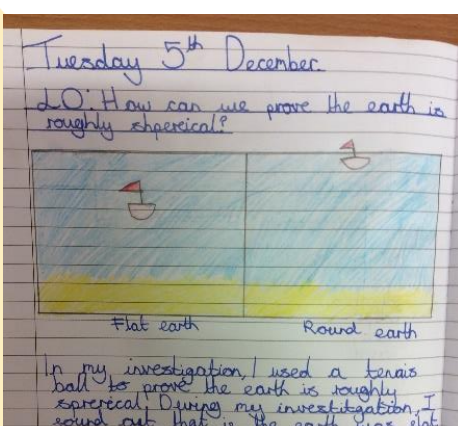 Tuesday 5th December.
LO: How can we prove the earth is
roughly shpereical?
Flat earth
Round earth
In my investigation, I used a tennis
ball to prove the earth is roughly
sprerical. During my investitgation, I
found out that if the earth was flat